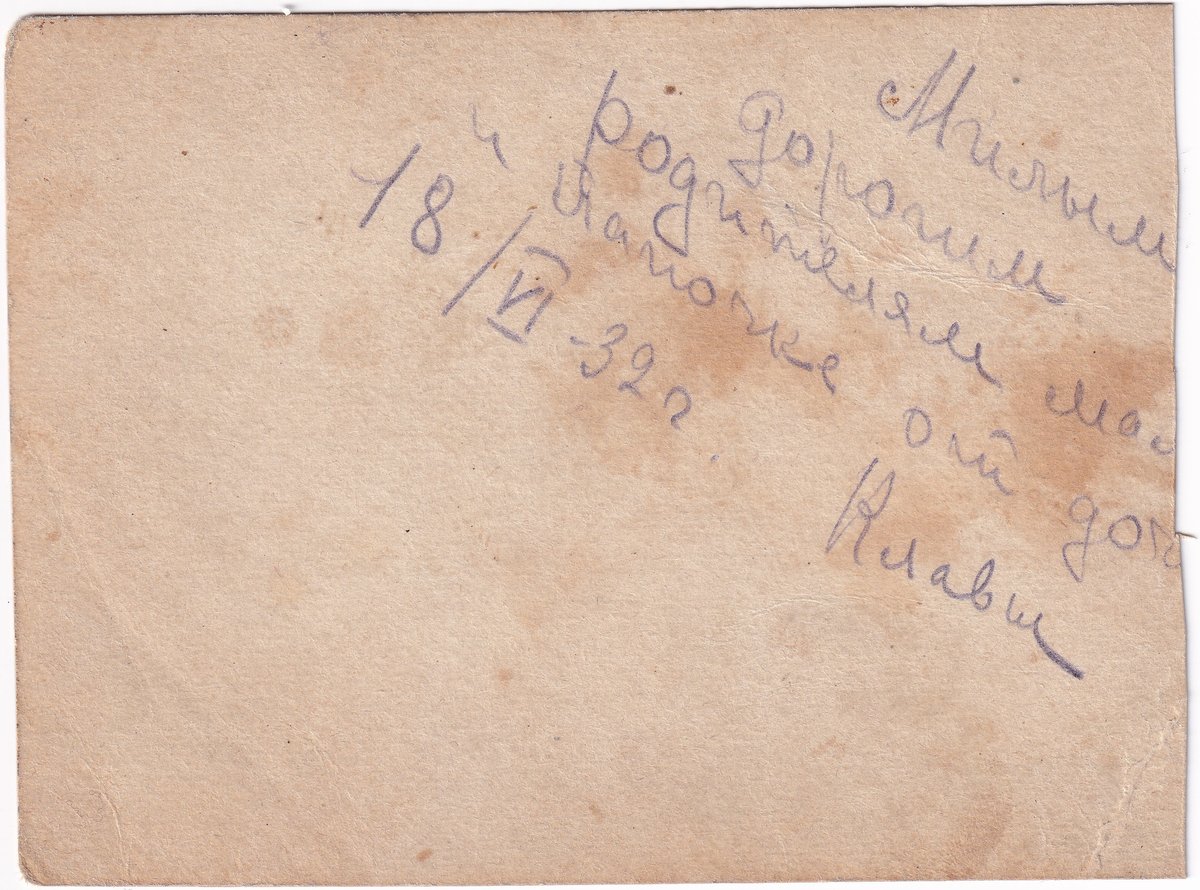 Милым
дорогим
родителям мам
и папочке от доч
Клавы
18/VI-32 г